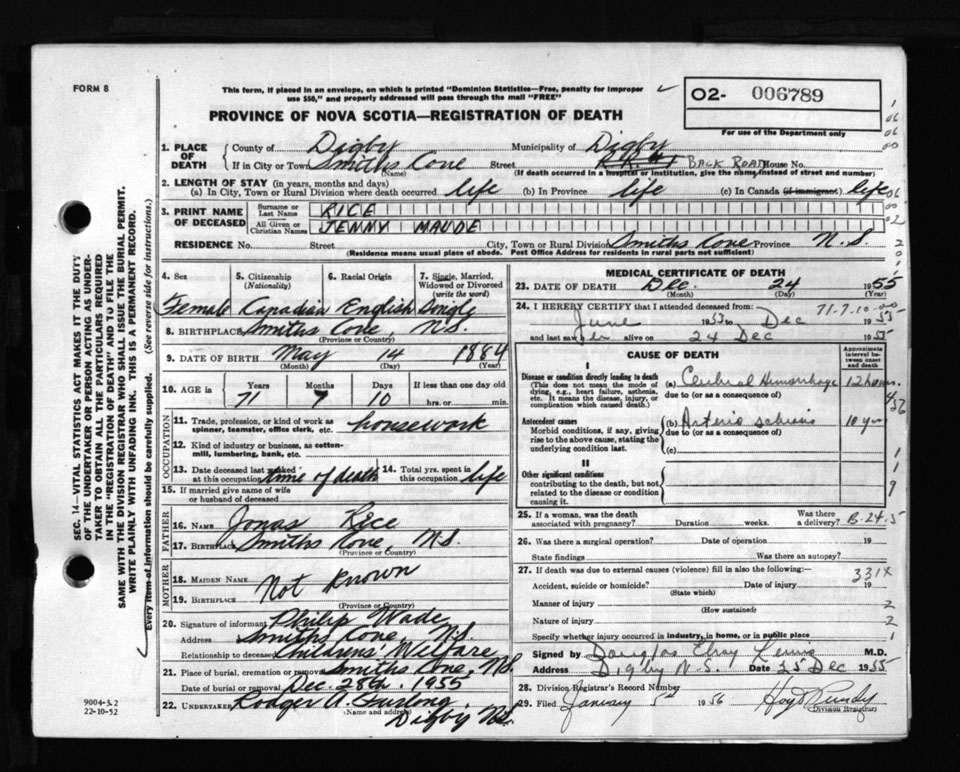 FORM 8
This form, if placed in an envelope, on which is printed "Dominion Statistics—Free, penalty for improper
use $50," and properly addressed will pass through the mail "FREE"
O2- 006789
For use of the Department only
PROVINCE OF NOVA SCOTIA—REGISTRATION OF DEATH
1. PLACE OF DEATH
County of Digby Municipality of Digby
If in City or Town Smiths Cove (Name) Street R.R. #1 BACK ROAD House No.
(If death occurred in a hospital or institution, give the name instead of street and number)
2. LENGTH OF STAY (in years, months and days)
(a) In City, Town or Rural Division where death occurred life (b) In Province life (c) In Canada (if immigrant) life
3. PRINT NAME OF DECEASED
Surname or Last Name RICE
All Given or Christian Names JENNY MAUDE
RESIDENCE No. Street City, Town or Rural Division Smiths Cove Province N.S.
(Residence means usual place of abode. Post Office Address for residents in rural parts not sufficient)
4. Sex 5. Citizenship (Nationality) 6. Racial Origin 7. Single, Married, Widowed or Divorced (write the word)
Female Canadian English Single
8. BIRTHPLACE Smiths Cove, N.S.
(Province or Country)
9. DATE OF BIRTH May 14 1884
(Month) (Day) (Year)
10. AGE in Years Months Days If less than one day old
71 7 10 hrs. or min.
OCCUPATION
11. Trade, profession, or kind of work as spinner, teamster, office clerk, etc. housework
12. Kind of industry or business, as cotton-mill, lumbering, bank, etc.
13. Date deceased last worked at this occupation time of death 14. Total yrs. spent in this occupation life
15. If married give name of wife or husband of deceased
FATHER
16. NAME Jonas Rice
17. BIRTHPLACE Smiths Cove, N.S.
(Province or Country)
MOTHER
18. MAIDEN NAME Not Known
19. BIRTHPLACE
(Province or Country)
20. Signature of informant Philip Wade
Address Smiths Cove, N.S.
Relationship to deceased Childrens' Welfare
21. Place of burial, cremation or removal Smiths Cove, N.S.
Date of burial or removal Dec. 28th. 1955
22. UNDERTAKER Rodger A. Furlong
(Name and address) Digby N.S.
MEDICAL CERTIFICATE OF DEATH
23. DATE OF DEATH Dec. 24 1955
(Month) (Day) (Year)
24. I HEREBY CERTIFY that I attended deceased from: 71-7-10
June 1953 to Dec 1955
and last saw her alive on 24 Dec 1955
CAUSE OF DEATH
Approximate interval between onset and death
I
Disease or condition directly leading to death
(This does not mean the mode of dying, e.g., heart failure, asthenia, etc. It means the disease, injury, or complication which caused death.
(a) Cerebral Hemorrhage 12 hours.
due to (or as a consequence of)
Antecedent causes
Morbid conditions, if any, giving rise to the above cause, stating the underlying condition last.
(b) Arterio sclerosis 10 yrs
due to (or as a consequence of)
(c)
II
Other significant conditions
contributing to the death, but not related to the disease or condition causing it.
25. If a woman, was the death associated with pregnancy? Duration weeks. Was there a delivery? B-24-5
26. Was there a surgical operation? Date of operation 19
State findings Was there an autopsy?
27. If death was due to external causes (violence) fill in also the following:—
331X
Accident, suicide or homicide? Date of injury 19
(State which)
Manner of injury
(How sustained)
Nature of injury
Specify whether injury occurred in industry, in home, or in public place
Signed by Douglas Lewis M.D.
Address Digby N.S. Date 25 Dec 1955
28. Division Registrar's Record Number
29. Filed January 5th 1956 Purdy
Division Registrar
SEC. 14—VITAL STATISTICS ACT MAKES IT THE DUTY
OF THE UNDERTAKER OR PERSON ACTING AS UNDER-
TAKER TO OBTAIN ALL THE PARTICULARS REQUIRED
IN THE "REGISTRATION OF DEATH" AND TO FILE THE
SAME WITH THE DIVISION REGISTRAR WHO SHALL ISSUE THE BURIAL PERMIT.
WRITE PLAINLY WITH UNFADING INK. THIS IS A PERMANENT RECORD.
Every item of information should be carefully supplied. (See reverse side for instructions.)
9004-3.2
22-10-52